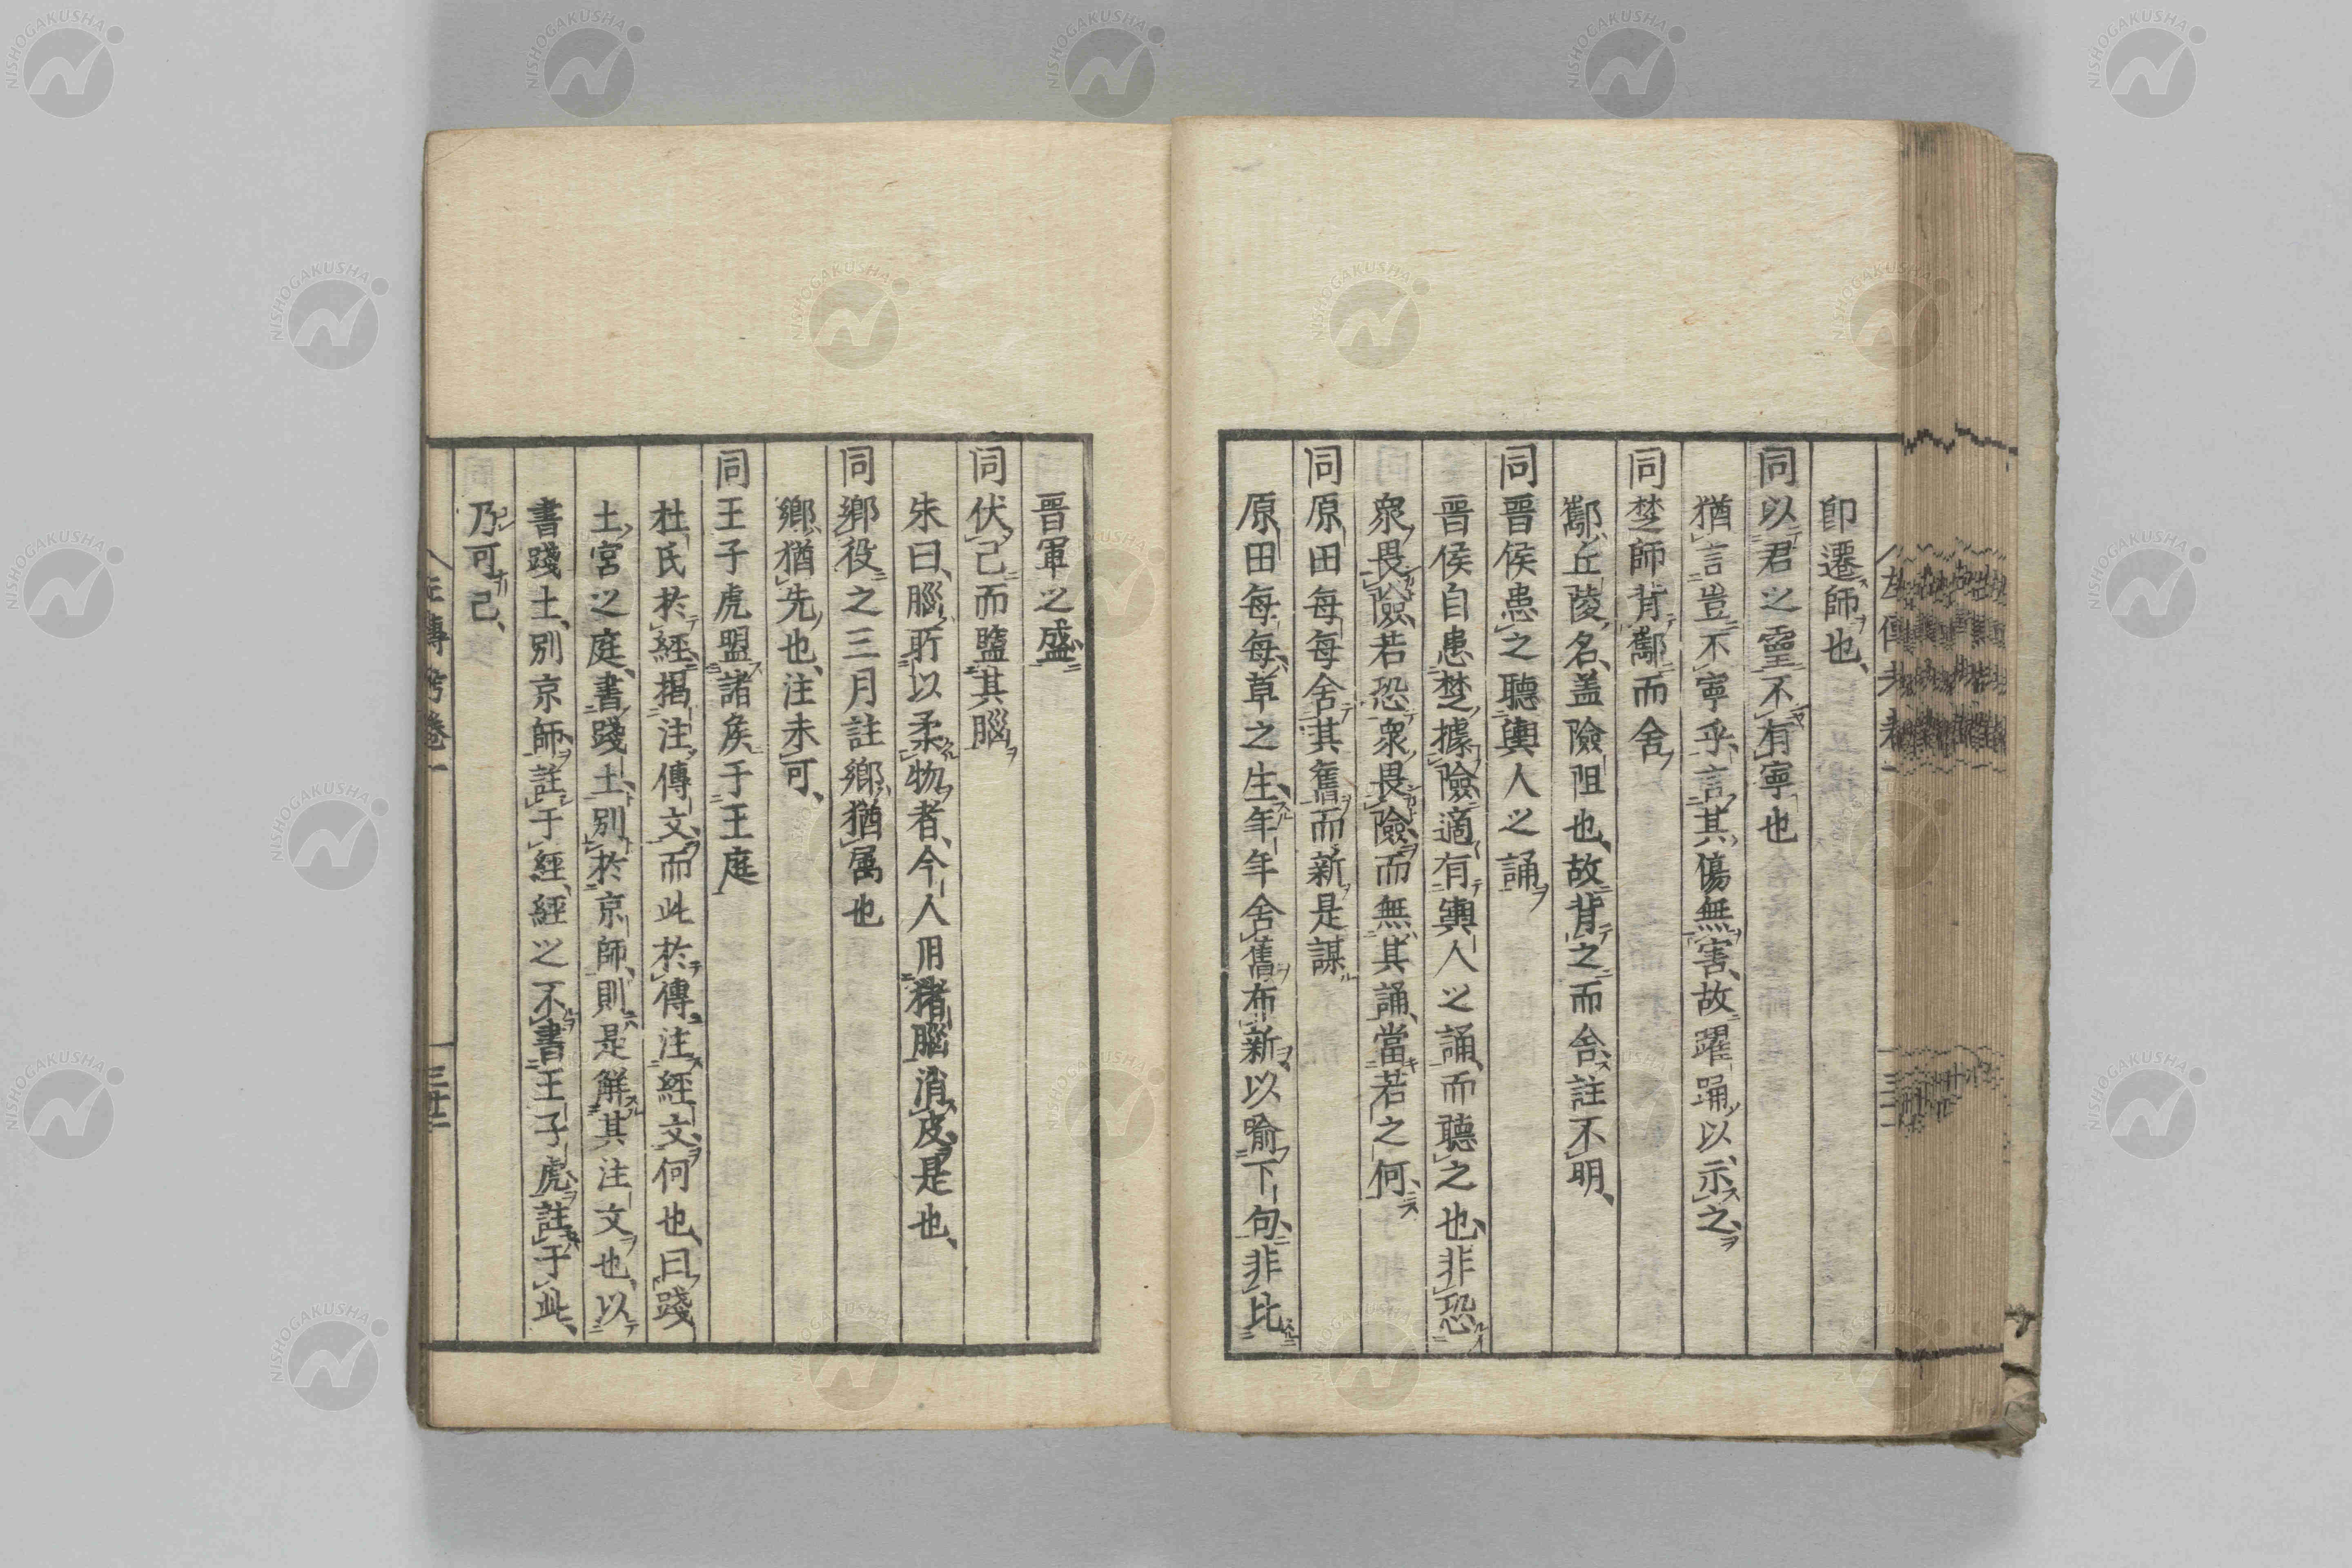 即遷師也、
同以君之靈不有寧也
猶言豈不寧乎、言其傷無害、故躍踊以示之、
同楚師背酅而舍
酅丘陵名、盖險阻也、故背之而舍、註不明、
同晉侯患之聽輿人之誦
晉侯自患楚據險適有輿人之誦、而聽之也、非恐
衆畏險、若恐衆畏險、而無其誦、當若之何、
同原田每每舍其舊而新是謀
原田每每、草之生、年年舍舊布新、以喻下句、非比
晉軍之盛
同伏己而盬其腦
朱曰、腦、所以柔物者、今人用猪腦消皮、是也、
同鄉役之三月註鄉猶属也
鄉猶先也、注未可、
同王子虎盟諸侯于王庭
杜氏於經揭注傳文、而此於傳、注經文、何也、曰踐
土宮之庭、書踐土、別於京師、則是解其注文也、以
書踐土、別京師、註于經、經之不書王子虎、註于此、
乃可已、
左傳考卷一
三十二
NISHOGAKUSHA